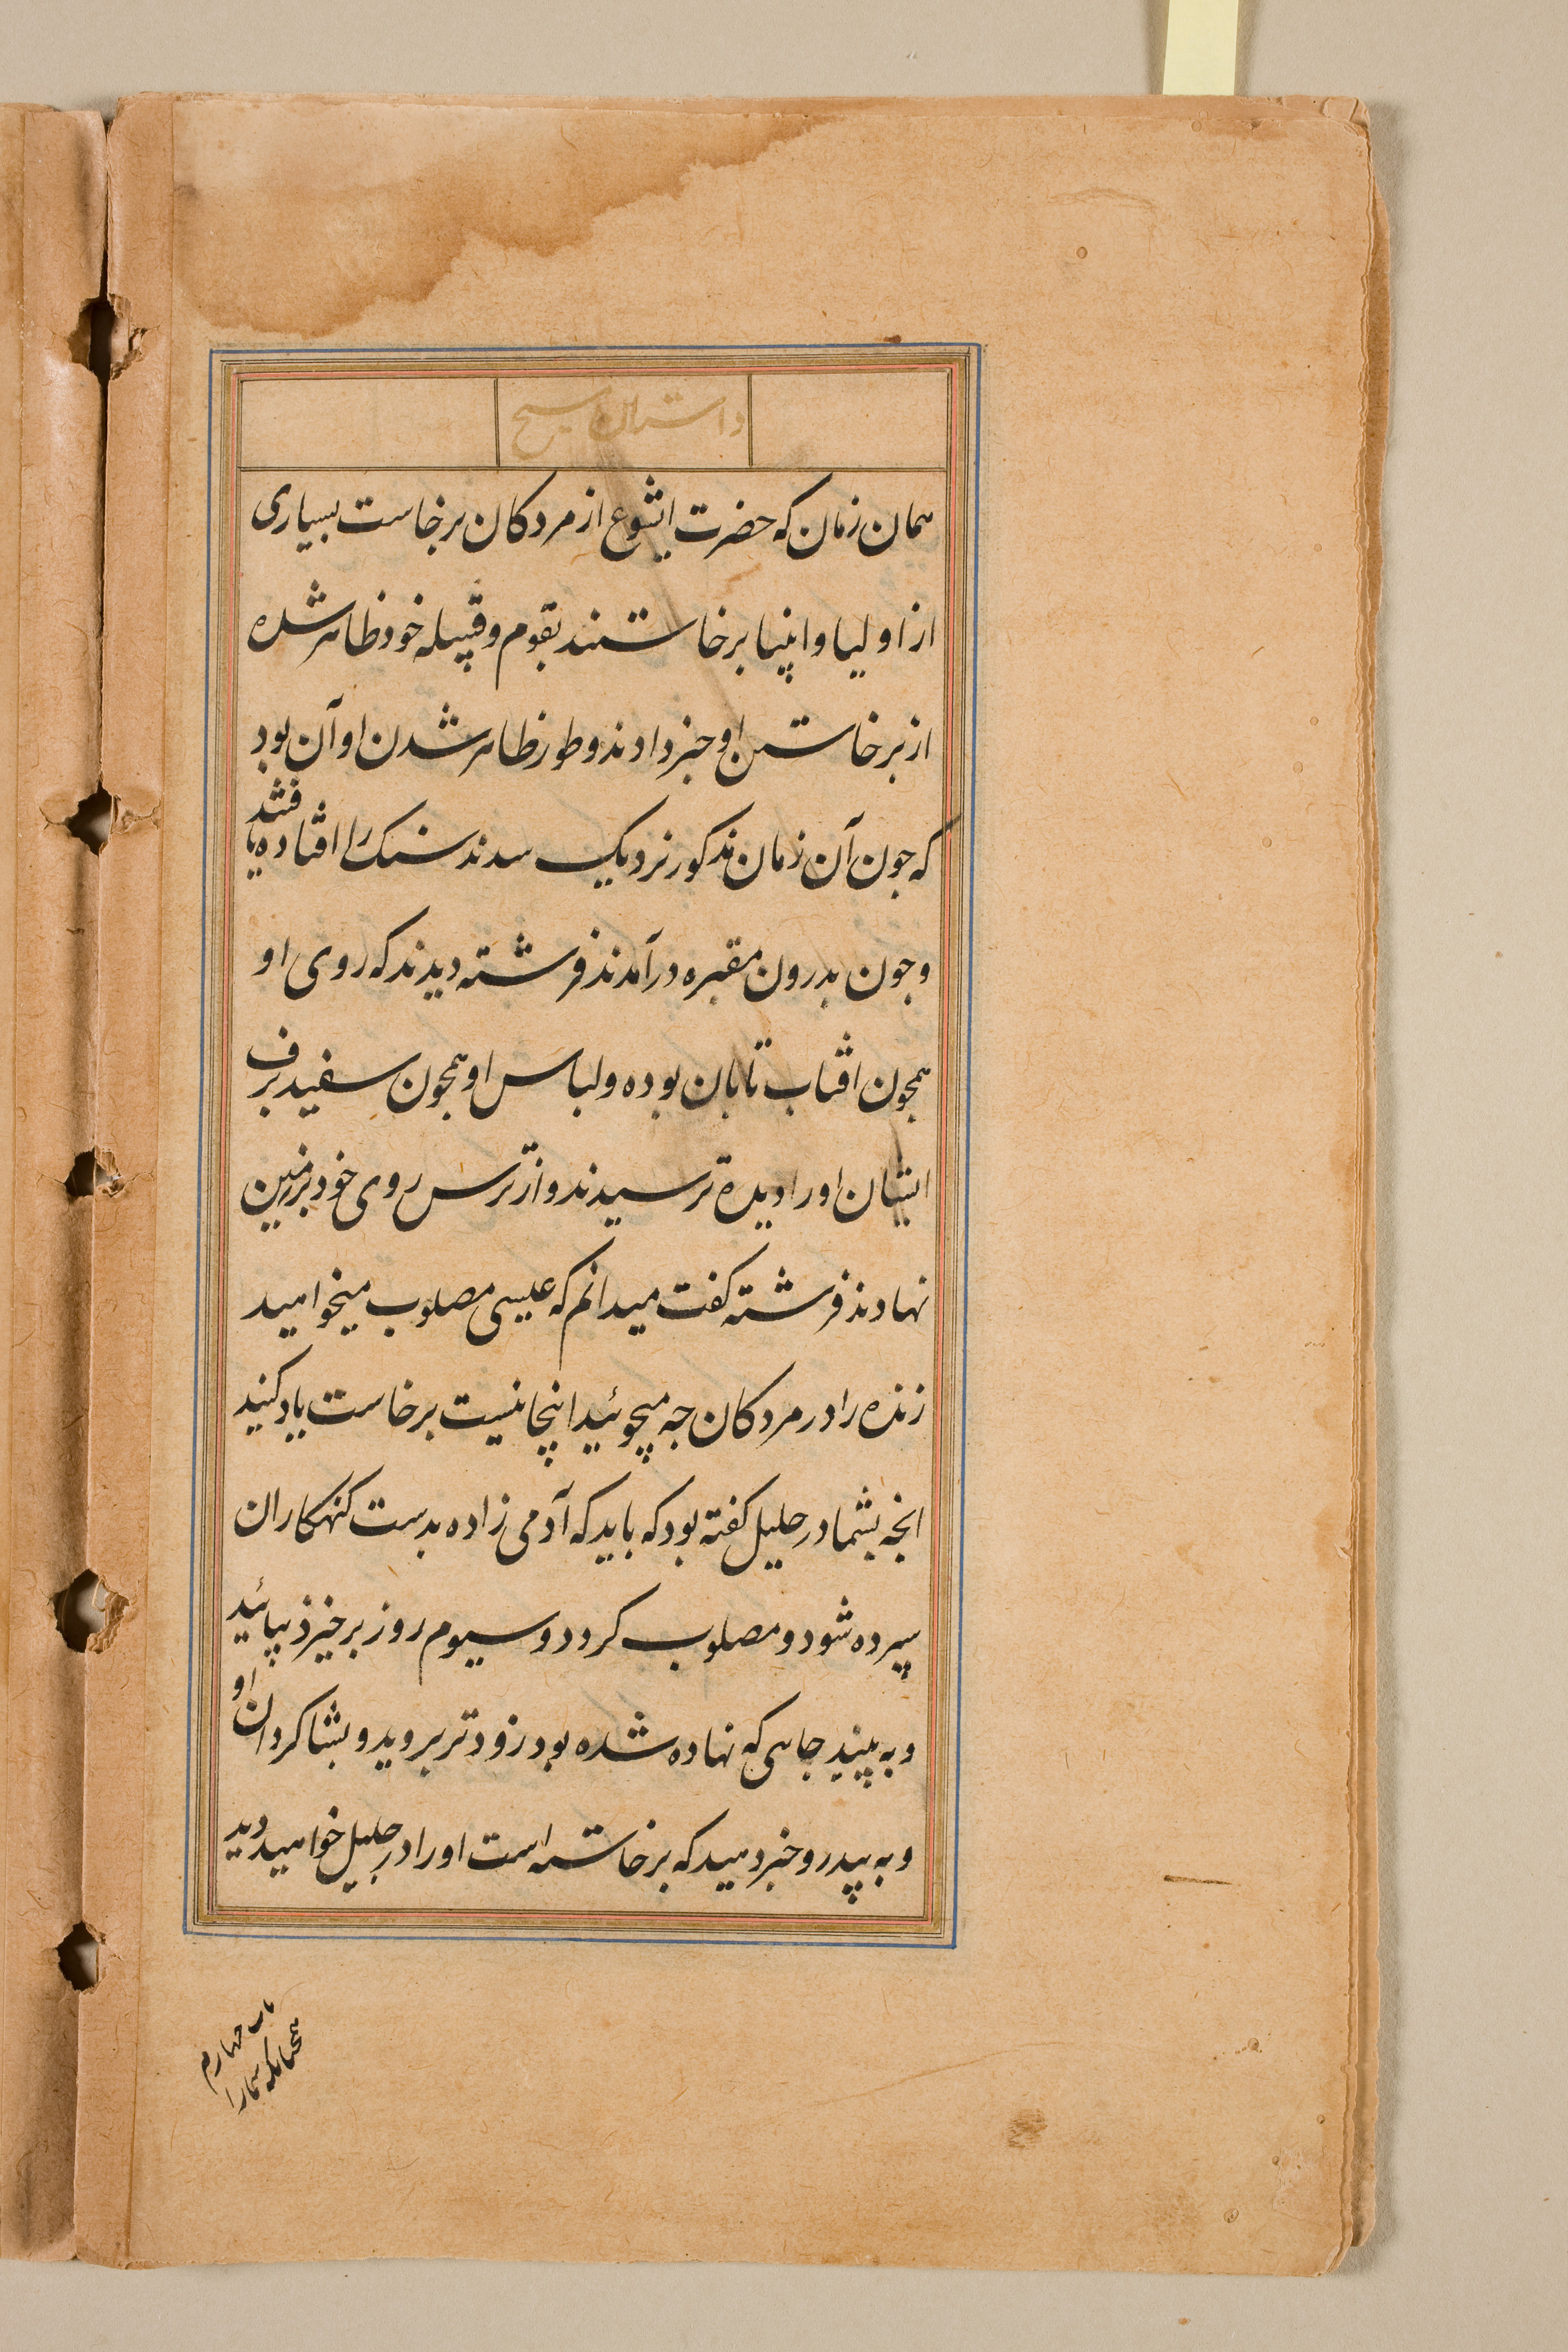 داستان مسیح
همان زمان که حضرت ایشوع از مردکان برخاست بسیاری
از اولیا و انبیا برخاستند بقوم و قبیله خود ظاهر شده
از برخاستن او خبر دادند و طور ظاهر شدن او آن بود
که جون آن زمان مذکور نزدیک سدند سنک را افتاده یافتند
و جون بدرون مقبره درآمدند فرشته دیدند که روی او
همجون افتاب تابان بوده و لباس او همجون سفید برف
ایشان اورا دیده ترسیدند و از ترس روی خود بر زمین
نهادند فرشته کفت میدانم که عیسی مصلوب میخواهید
زنده را در مردکان جه میجوئید اینجا نیست برخاست یاد کنید
انجه بشما در جلیل کفته بود که باید که آدمی زاده بدست کنهکاران
سپرده شود و مصلوب کردد و سیوم روز برخیزد بیائید
و به بینید جاهی که نهاده شده بود زودتر بروید و بشاکردان او
و به پیدرو خبر دهید که برخاسته است اورا در جلیل خواهید دید
باب چهارم
همچنانکه شمارا